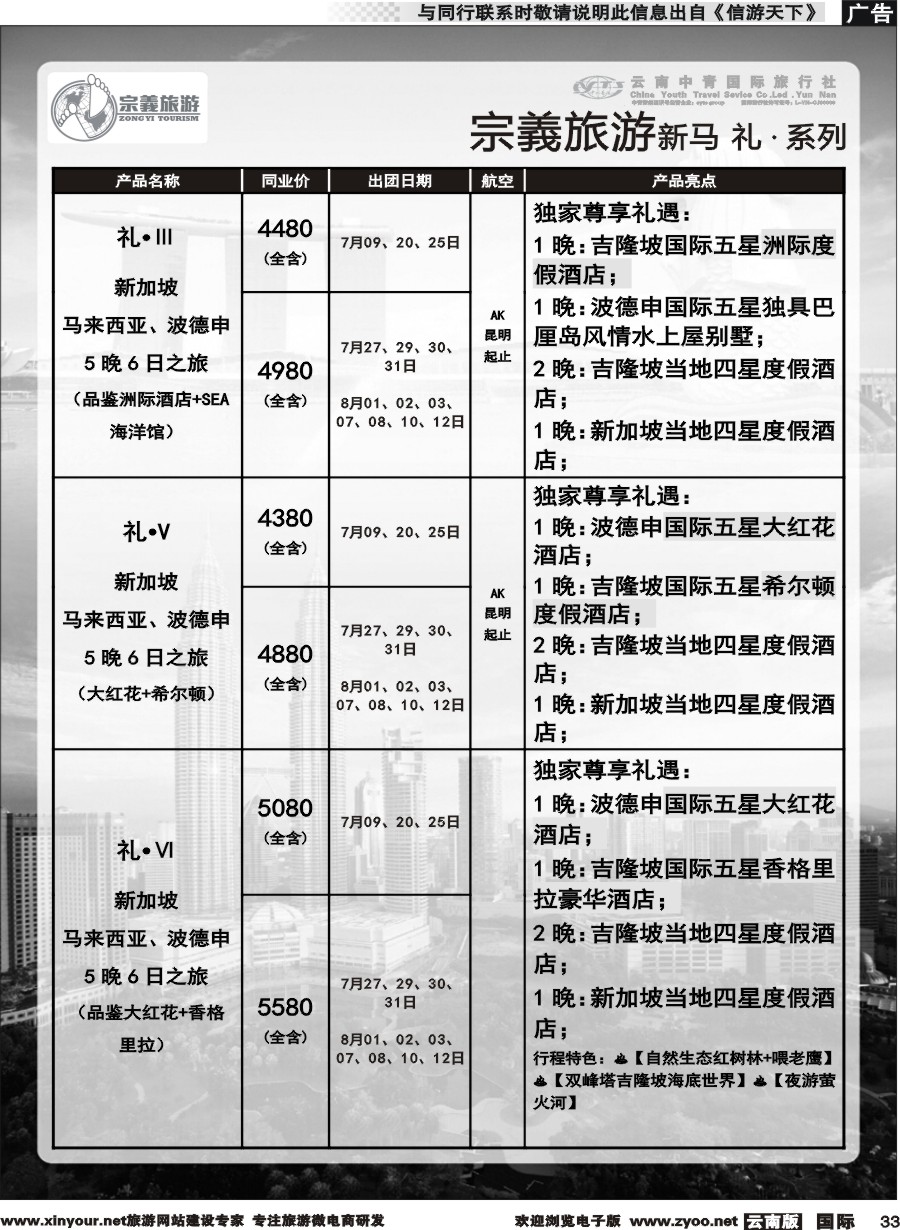 与同行联系时敬请说明此信息出自《信游天下》
广告
宗義旅游
ZONG YI TOURISM
云南中青国际旅行社
China Youth Travel Sevice Co.Led .Yun Nan
宗義旅游新马 礼·系列
产品名称 同业价 出团日期 航空 产品亮点
礼•III
新加坡
马来西亚、波德申
5晚6日之旅
（品鉴洲际酒店+SEA
海洋馆）
4480
(全含)
7月09、20、25日
4980
(全含)
7月27、29、30、
31日
8月01、02、03、
07、08、10、12日
AK
昆明
起止
独家尊享礼遇：
1晚：吉隆坡国际五星洲际度
假酒店；
1晚：波德申国际五星独具巴
厘岛风情水上屋别墅；
2晚：吉隆坡当地四星度假酒
店；
1晚：新加坡当地四星度假酒
店；
礼•V
新加坡
马来西亚、波德申
5晚6日之旅
（大红花+希尔顿）
4380
(全含)
7月09、20、25日
4880
(全含)
7月27、29、30、
31日
8月01、02、03、
07、08、10、12日
AK
昆明
起止
独家尊享礼遇：
1晚：波德申国际五星大红花
酒店；
1晚：吉隆坡国际五星希尔顿
度假酒店；
2晚：吉隆坡当地四星度假酒
店；
1晚：新加坡当地四星度假酒
店；
礼•VI
新加坡
马来西亚、波德申
5晚6日之旅
（品鉴大红花+香格
里拉）
5080
(全含)
7月09、20、25日
5580
(全含)
7月27、29、30、
31日
8月01、02、03、
07、08、10、12日
独家尊享礼遇：
1晚：波德申国际五星大红花
酒店；
1晚：吉隆坡国际五星香格里
拉豪华酒店；
2晚：吉隆坡当地四星度假酒
店；
1晚：新加坡当地四星度假酒
店；
行程特色：♨【自然生态红树林+喂老鹰】
♨【双峰塔吉隆坡海底世界】♨【夜游萤
火河】
www.xinyour.net旅游网站建设专家 专注旅游微电商研发
欢迎浏览电子版 www.zyoo.net 云南版 国际 33